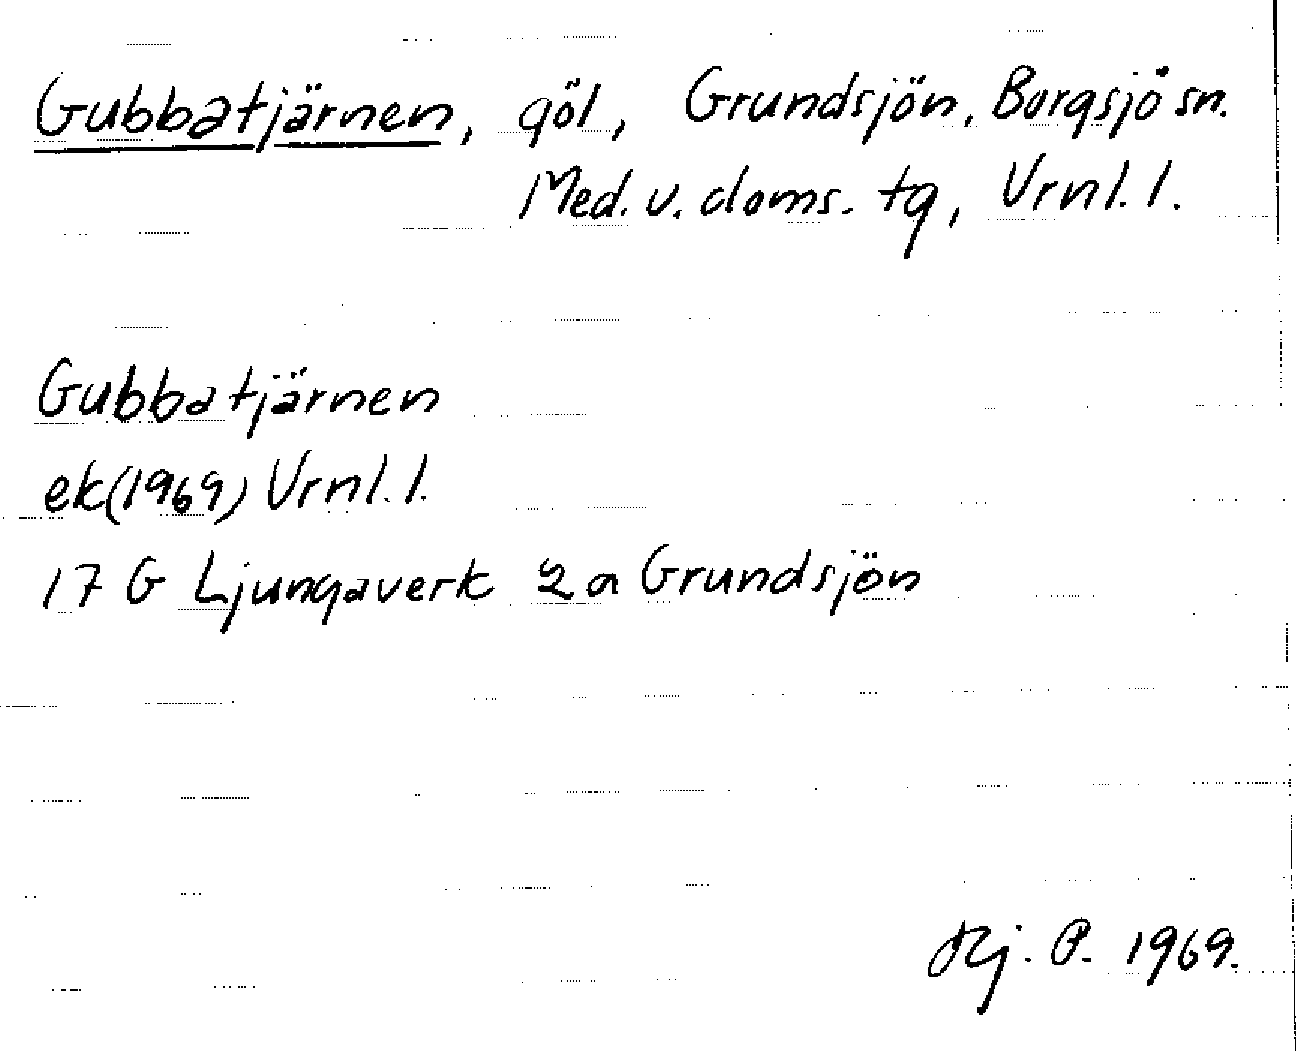 Gubbatjärnen, göl, Grundsjön, Borgsjö sn.
Med. v. doms. tg, Vrnl. l.
Gubbatjärnen
ek(1969) Vrnl. l.
17 G Ljungaverk 2 a Grundsjön
Hj. P. 1969.